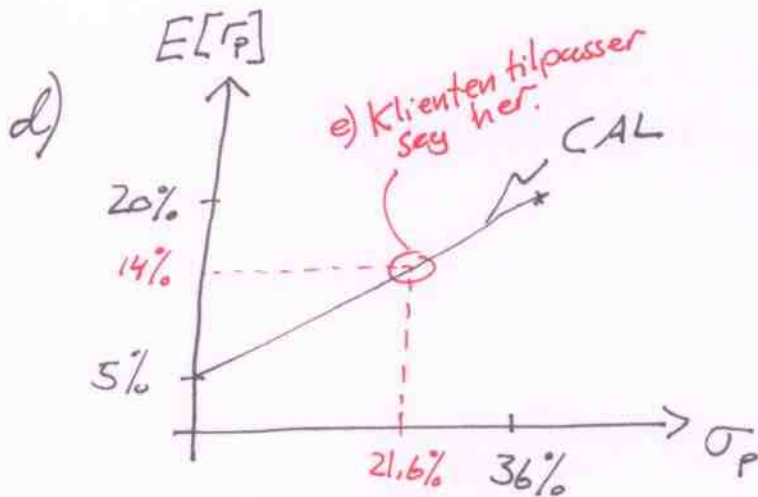 E[rₚ]
d)
e) Klienten tilpasser
seg her.
CAL
20%
14%
5%
21,6%
36%
σₚ